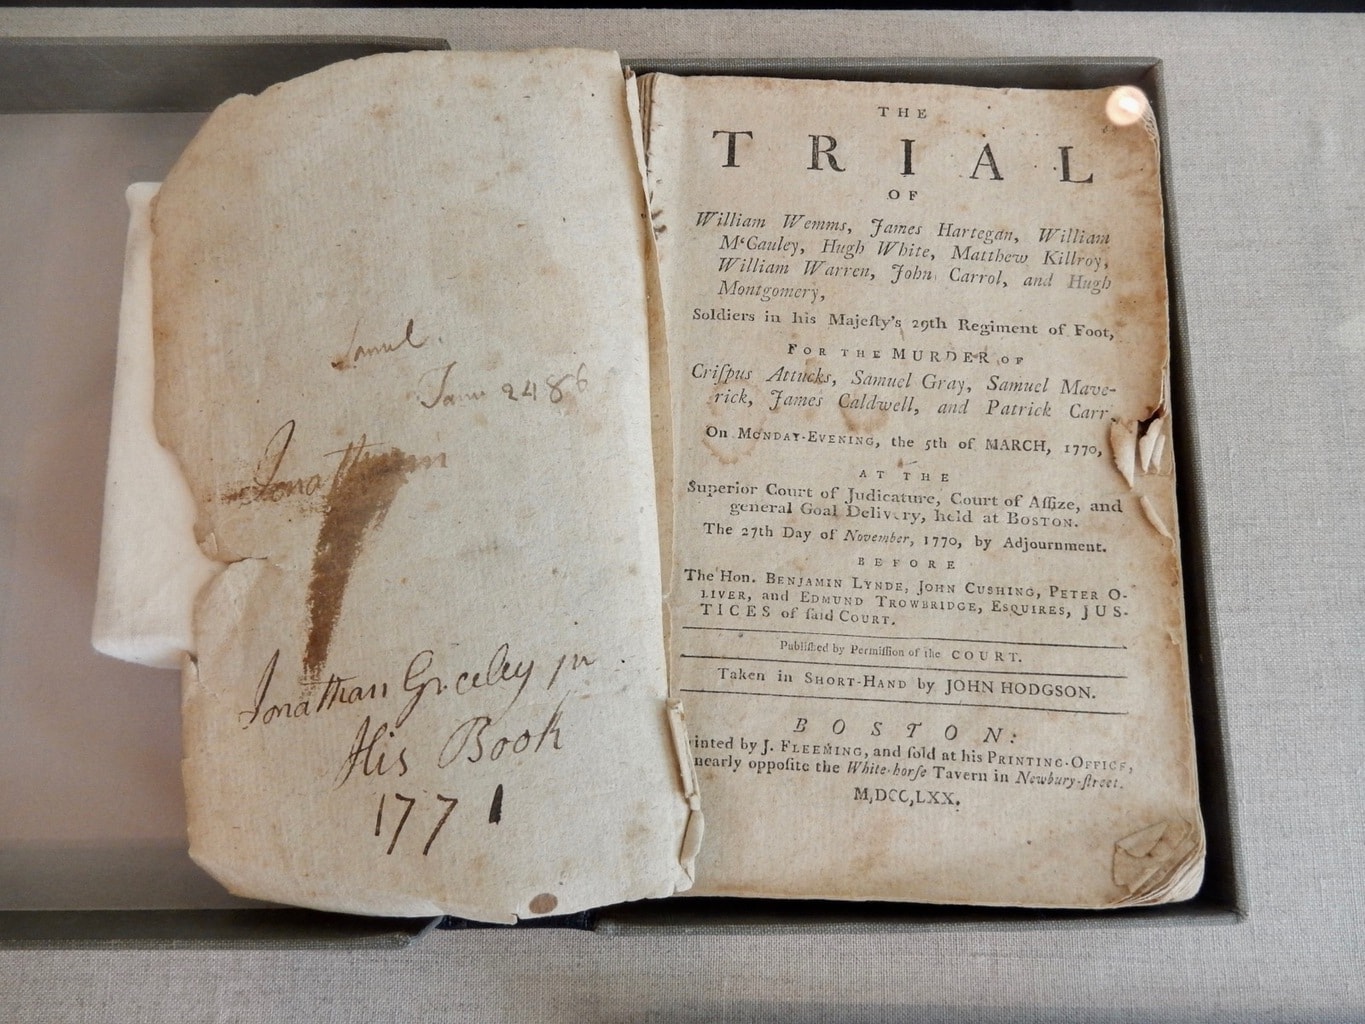 Samuel.
Jonathan
Jonathan Greeley jn
His Book
1771
THE
TRIAL
OF
William Wemms, James Hartegan, William
M‘Cauley, Hugh White, Matthew Killroy,
William Warren, John Carrol, and Hugh
Montgomery,
Soldiers in his Majeſty's 29th Regiment of Foot,
FOR THE MURDER OF
Criſpus Attucks, Samuel Gray, Samuel Mave-
rick, James Caldwell, and Patrick Carr,
On MONDAY-EVENING, the 5th of MARCH, 1770,
AT THE
Superior Court of Judicature, Court of Aſſize, and
general Goal Delivery, held at BOSTON.
The 27th Day of November, 1770, by Adjournment.
BEFORE
The Hon. BENJAMIN LYNDE, JOHN CUSHING, PETER O-
LIVER, and EDMUND TROWBRIDGE, ESQUIRES, JUS-
TICES of ſaid COURT.
Publiſhed by Permiſſion of the COURT.
Taken in SHORT-HAND by JOHN HODGSON.
BOSTON:
inted by J. FLEEMING, and ſold at his PRINTING-OFFICE,
nearly oppoſite the White-horſe Tavern in Newbury-ſtreet.
M,DCC,LXX.